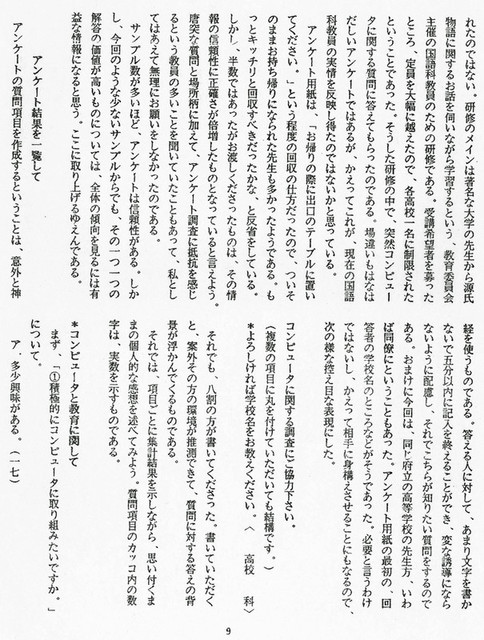 れたのではない。研修のメインは著名な大学の先生から源氏
物語に関するお話を伺いながら学習するという、教育委員会
主催の国語科教員のための研修である。受講希望者を募った
ところ、定員を大幅に越えたので、各高校一名に制限された
ということであった。そうした研修の中で、突然コンピュー
タに関する質問に答えてもらったのである。場違いもはなは
だしいアンケートではあるが、かえってこれが、現在の国語
科教員の実情を反映し得たのではないかと思っている。
アンケート用紙は、「お帰りの際に出口のテーブルに置い
てください。」という程度の回収の仕方だったので、ついそ
のままお持ち帰りになられた先生も多かったようである。も
っとキッチリと回収すべきだったかな、と反省をしている。
しかし、半数ではあったがお渡しくださったものは、その情
報の信頼性に正確さが倍増したものとなっていると言えよう。
唐突な質問と場所柄に加えて、アンケート調査に抵抗を感じ
るという教員の多いことを聞いていたこともあって、私とし
てはあえて無理にお願いをしなかったのである。
サンプル数が多いほど、アンケートは信頼性がある。しか
し、今回のような少ないサンプルからでも、その一つ一つの
解答の価値が高いものについては、全体の傾向を見るには有
益な情報になると思う。ここに取り上げるゆえんである。
アンケート結果を一覧して
アンケートの質問項目を作成するということは、意外と神
経を使うものである。答える人に対して、あまり文字を書か
ないで五分以内に記入を終えることができ、変な誘導になら
ないように配慮し、それでこちらが知りたい質問をするので
ある。おまけに今回は、同じ府立の高等学校の先生方、いわ
ば同僚にということもあった。アンケート用紙の最初の、回
答者の学校名のところなどがそうであった。必要と言うわけ
ではないし、かえって相手に身構えさせることにもなるので、
次の様な控え目な表現にした。
コンピュータに関する調査にご協力下さい。
（複数の項目に丸を付けていただいても結構です。）
*よろしければ学校名をお教えください。〈　高校　科〉
それでも、八割の方が書いてくださった。書いていただく
と、案外その方の環境が推測できて、質問に対する答えの背
景が浮かんでくるものである。
それでは、項目ごとに集計結果を示しながら、思い付くま
まの個人的な感想を述べてみよう。質問項目のカッコ内の数
字は、実数を示すものである。
*コンピュータと教育に関して
まず、「①積極的にコンピュータに取り組みたいですか。」
について。
ア．多少興味がある。（一七）
9